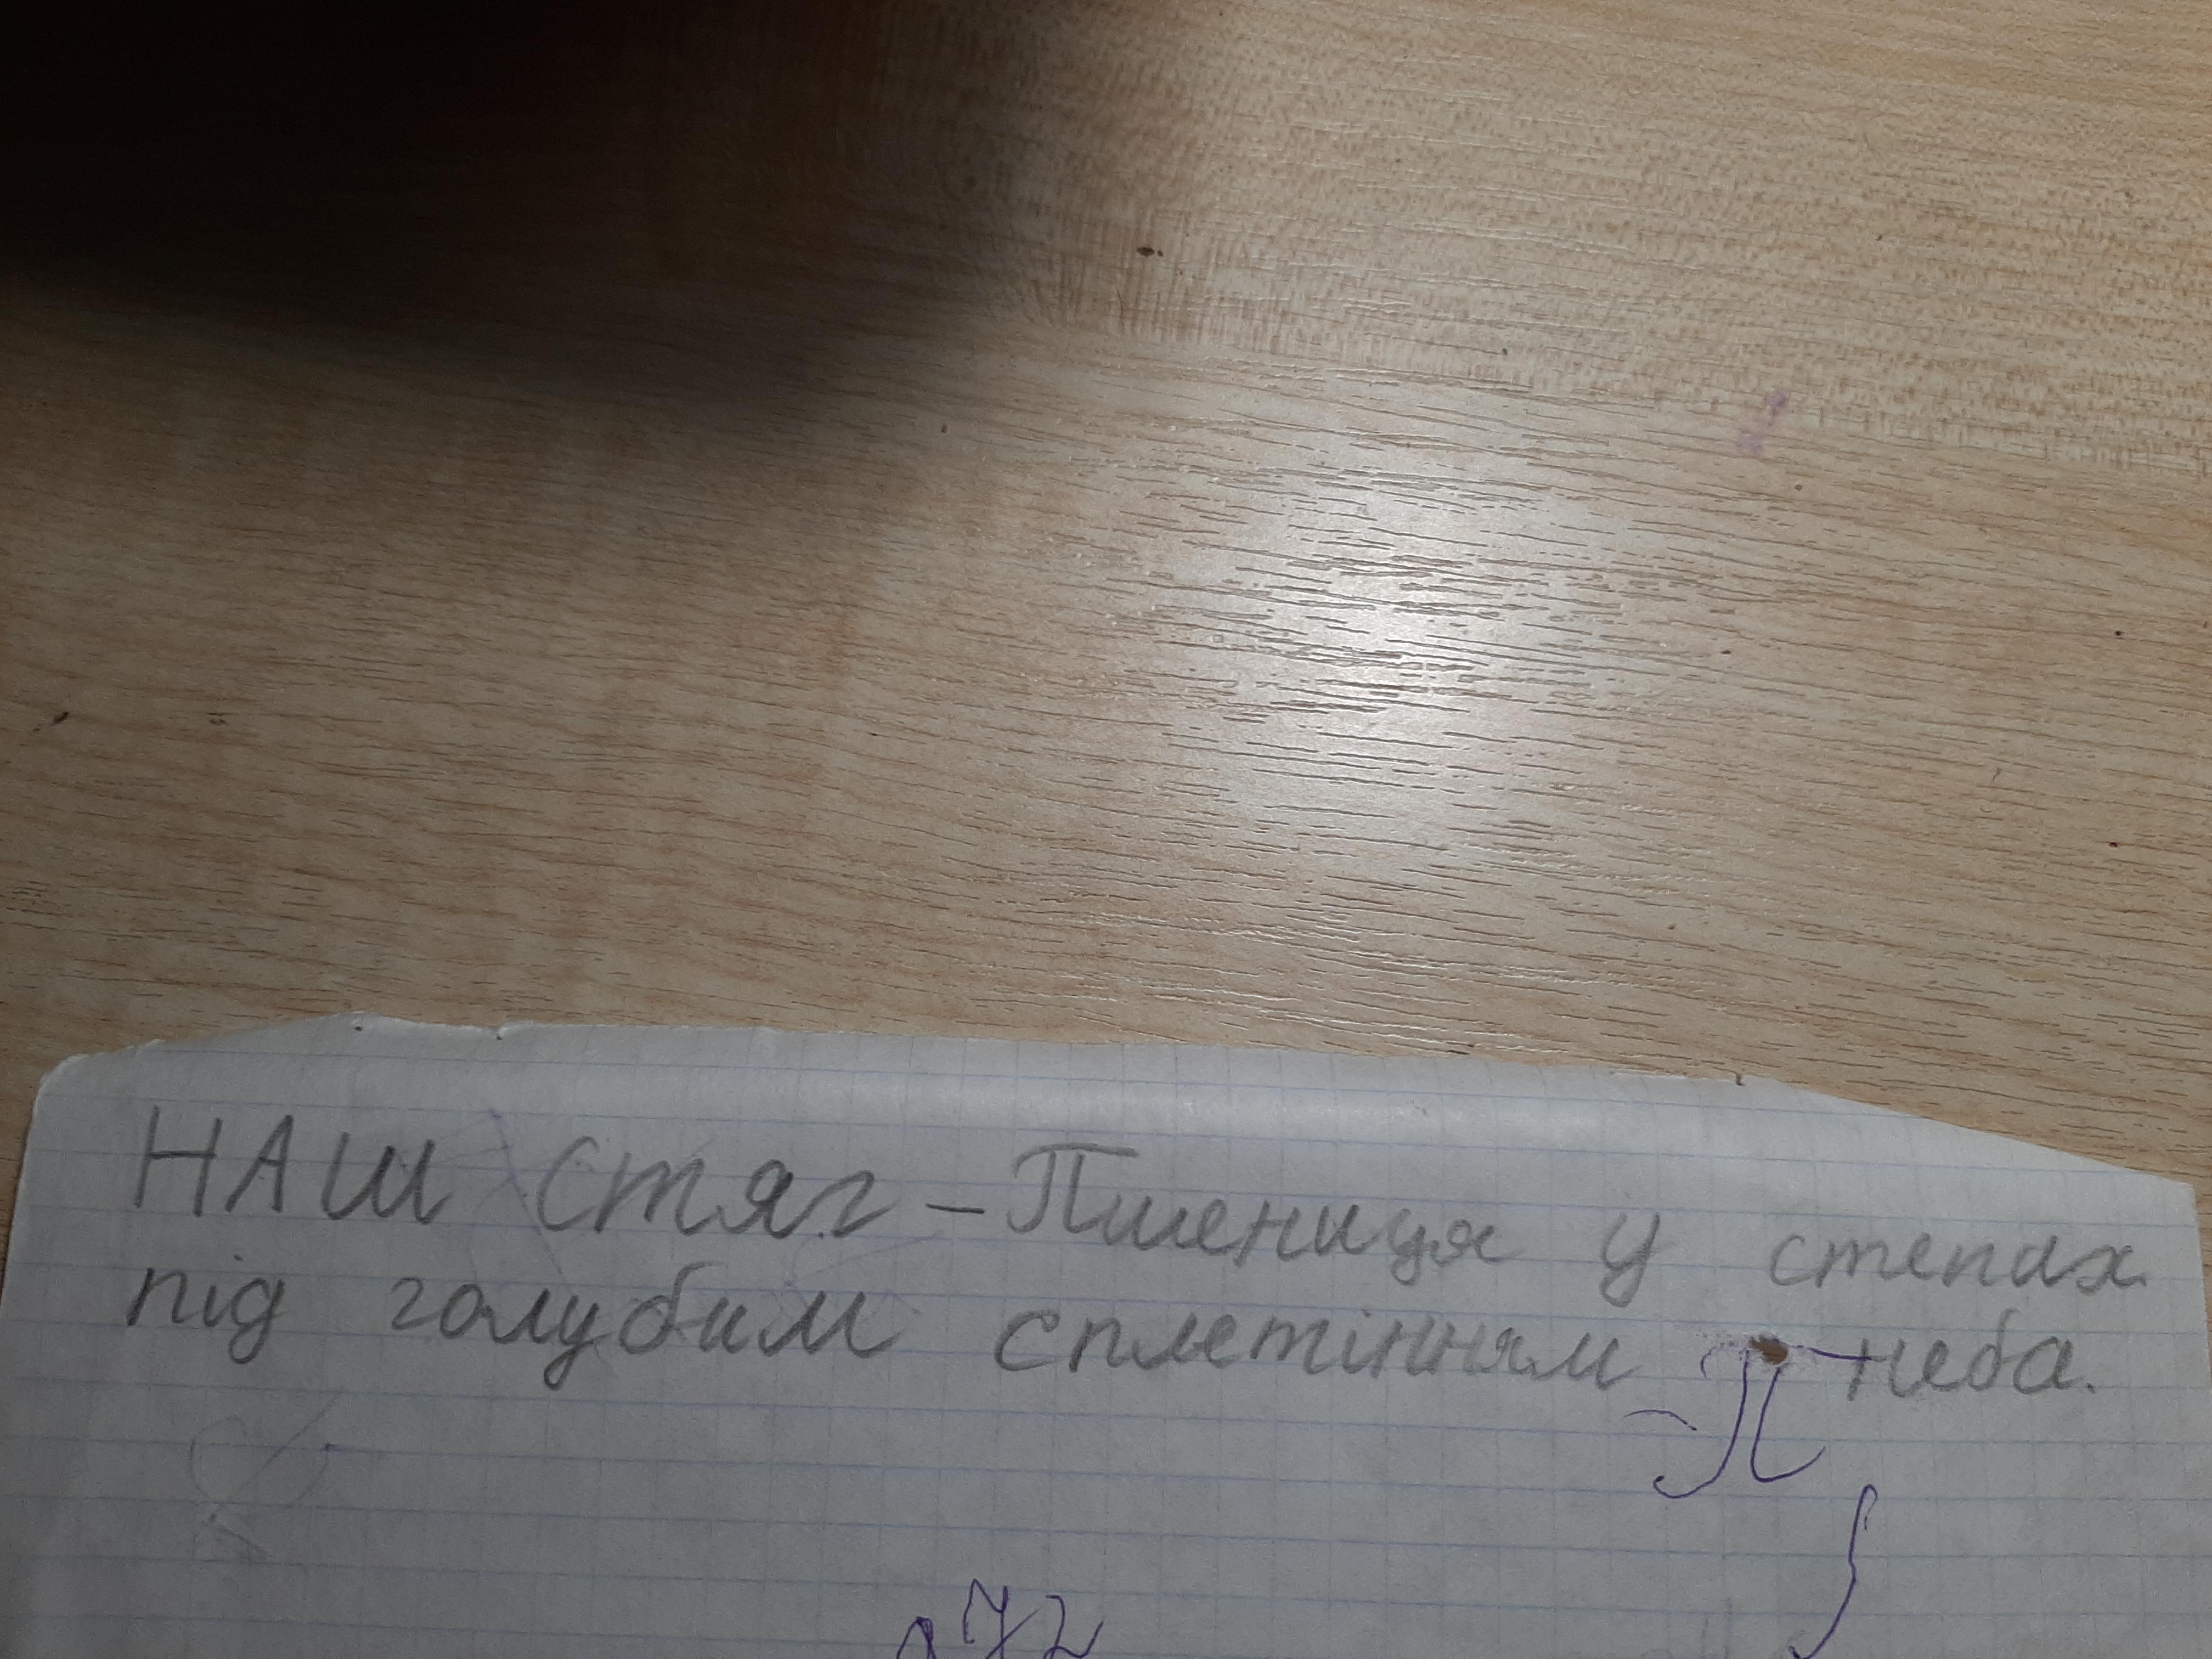 НАШ стяг – Пшениця у степах
під голубим сплетінням неба.
П